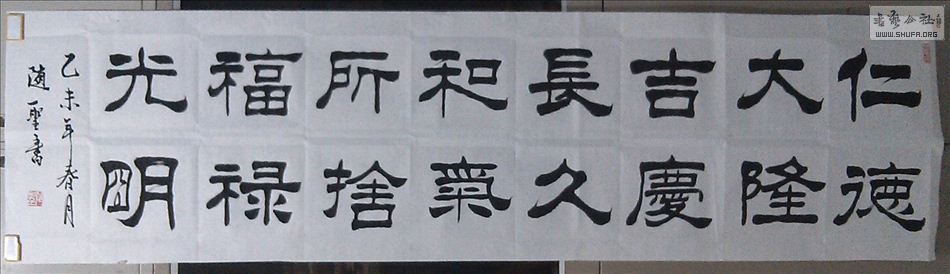 仁德
大隆
吉慶
長久
和氣
所捨
福禄
光明
乙未年春月
随聖書
書藝公社
WWW.SHUFA.ORG